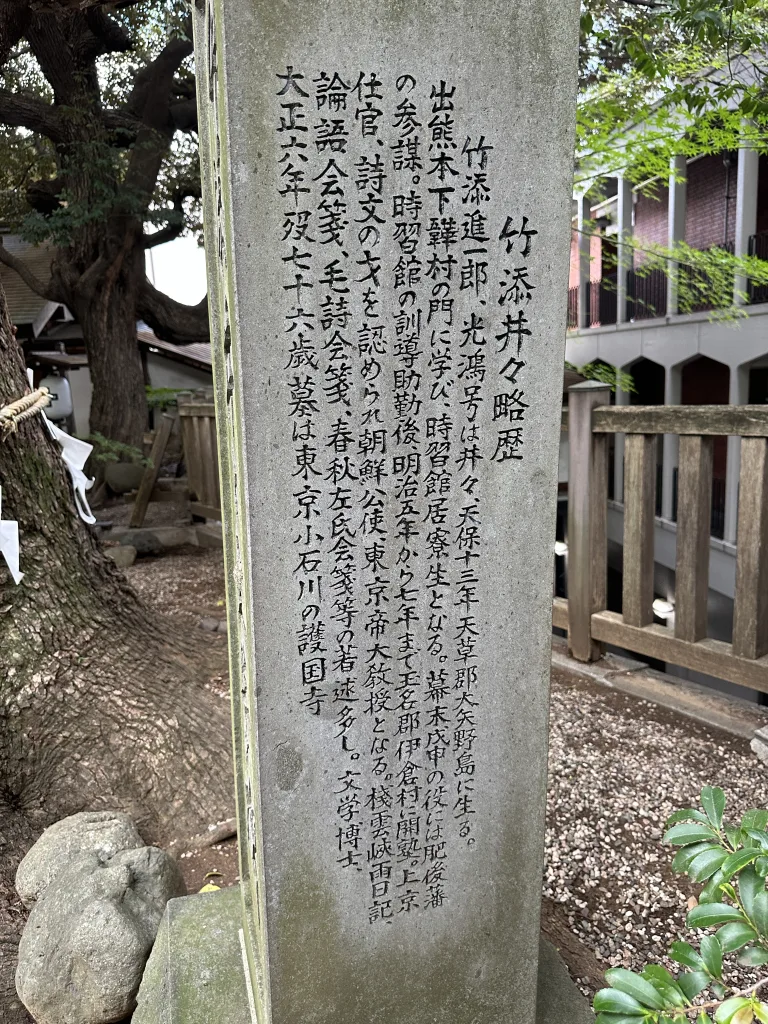 竹添井々略歴
竹添進一郎、光鴻号は井々、天保十三年天草郡大矢野島に生る。
出熊本下韡村の門に学び、時習館居寮生となる。幕末戊申の役には肥後藩
の参謀。時習館の訓導助勤後明治五年から七年まで玉名郡伊倉村に開塾。上京
仕官、詩文の才を認められ朝鮮公使、東京帝大教授となる。棧雲峽雨日記、
論語会箋、毛詩会箋、春秋左氏会箋等の著述多し。文学博士、
大正六年歿七十六歳墓は東京小石川の護国寺